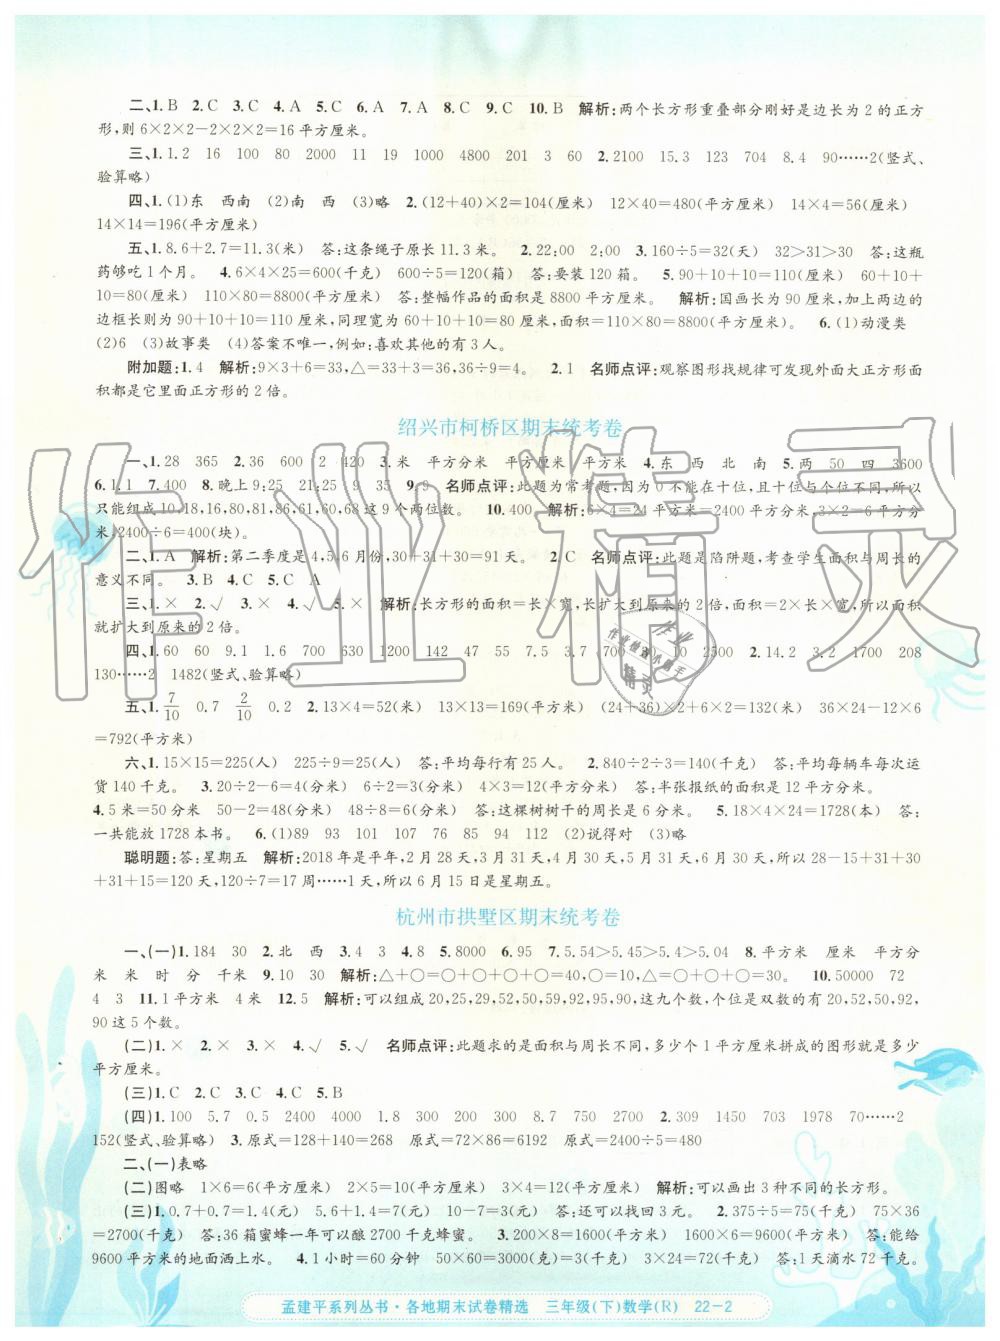 二、1. B　2. C　3. C　4. A　5. C　6. A　7. A　8. C　9. C　10. B　解析:两个长方形重叠部分刚好是边长为 2 的正方
形,则 6×2×2－2×2×2=16 平方厘米。
三、1. 1.2　16　100　80　2000　11　19　1000　4800　201　3　60　2. 2100　15.3　123　704　8.4　90……2(竖式、
验算略)
四、1. (1)东　西南　(2)南　西　(3)略　2. (12+40)×2=104(厘米)　12×40=480(平方厘米)　14×4=56(厘米)
14×14=196(平方厘米)
五、1. 8.6+2.7=11.3(米)　答:这条绳子原长 11.3 米。　2. 22:00　2:00　3. 160÷5=32(天)　32>31>30　答:这瓶
药够吃 1 个月。　4. 6×4×25=600(千克)　600÷5=120(箱)　答:要装 120 箱。　5. 90+10+10=110(厘米)　60+10+
10=80(厘米)　110×80=8800(平方厘米)　答:整幅作品的面积是 8800 平方厘米。　解析:国画长为 90 厘米,加上两边的
边框长则为 90+10+10=110 厘米,同理宽为 60+10+10=80 厘米,面积=110×80=8800(平方厘米)。　6. (1)动漫类
(2)6　(3)故事类　(4)答案不唯一,例如:喜欢其他的有 3 人。
附加题:1. 4　解析:9×3+6=33,△=33+3=36,36÷9=4。　2. 1　名师点评:观察图形找规律可发现外面大正方形面
积都是它里面正方形的 2 倍。
绍兴市柯桥区期末统考卷
一、1. 28　365　2. 36　600　2　420　3. 米　平方分米　平方厘米　平方米　4. 东　西　北　南　5. 两　50　四　3600
6. 1.1　7. 400　8. 晚上 9:25　21:25　9　35　9. 9　名师点评:此题为常考题,因为 0 不能在十位,且十位与个位不同,所以
只能组成 10,18,16,80,81,86,61,60,68 这 9 个两位数。　10. 400　解析:6×4=24 平方米=2400 平方分米,3×2=6 平方分
米,2400÷6=400(块)。
二、1. A　解析:第二季度是 4,5,6 月份,30+31+30=91 天。　2. C　名师点评:此题是陷阱题,考查学生面积与周长的
意义不同。　3. B　4. C　5. C　A
三、1. ×　2. √　3. ×　4. √　5. ×　解析:长方形的面积=长×宽,长扩大到原来的 2 倍,面积=2×长×宽,所以面积
就扩大到原来的 2 倍。
四、1. 60　60　9.1　700　630　1200　442　47　55　7.5　3.7　700　80　10　2500　2. 14.2　3.2　1700　208
130……2　1482(竖式、验算略)
五、1. 7/10　0.7　2/10　0.2　2. 13×4=52(米)　13×13=169(平方米)　(24+36)×2+6×2=132(米)　36×24－12×6
=792(平方米)
六、1. 15×15=225(人)　225÷9=25(人)　答:平均每行有 25 人。　2. 840÷2÷3=140(千克)　答:平均每辆车每次运
货 140 千克。　3. 20÷2－6=4(分米)　6÷2=3(分米)　4×3=12(平方分米)　答:半张报纸的面积是 12 平方分米。
4. 5 米=50 分米　50－2=48(分米)　48÷8=6(分米)　答:这棵树树干的周长是 6 分米。　5. 18×4×24=1728(本)　答:
一共能放 1728 本书。　6. (1)89　93　101　107　76　85　94　112　(2)说得对　(3)略
聪明题:答:星期五　解析:2018 年是平年,2 月 28 天,3 月 31 天,4 月 30 天,5 月 31 天,所以 28－15+31+30
+31+15=120 天,120÷7=17 周……1 天,所以 6 月 15 日是星期五。
杭州市拱墅区期末统考卷
一、(一)1. 184　30　2. 北　西　3. 4　3　4. 8　5. 8000　6. 95　7. 5.54>5.45>5.4>5.04　8. 平方米　厘米　平方分
米　米　时　分　千米　9. 10　30　解析:△+○=○+○+○+○=40,○=10,△=○+○+○=30。　10. 50000　72
4　3　11. 1 平方米　4 米　12. 5　解析:可以组成 20,25,29,52,50,59,92,95,90,这九个数,个位是双数的有 20,52,50,92,
90 这 5 个数。
(二)1. ×　2. ×　3. ×　4. √　5. √　名师点评:此题求的是面积与周长不同,多少个 1 平方厘米拼成的图形就是多少
平方厘米。
(三)1. C　2. C　3. C　4. C　5. B
(四)1. 100　5.7　0.5　2400　4000　1.8　300　300　8.7　750　2000　2. 309　1450　703　1978　70……2
152(竖式、验算略)　3. 原式=128+140=268　原式=72×86=6192　原式=2400÷5=480
二、(一)表略
(二)图略　1×6=6(平方厘米)　2×5=10(平方厘米)　3×4=12(平方厘米)　解析:可以画出 3 种不同的长方形。
(三)1. 0.7+0.7=1.4(元)　5.6+1.4=7(元)　10－7=3(元)　答:还可以找回 3 元。　2. 375÷5=75(千克)　75×36
=2700(千克)　答:36 箱蜜蜂一年可以酿 2700 千克蜂蜜。　3. 200×8=1600(平方米)　1600×6=9600(平方米)　答:能给
9600 平方米的地面洒上水。　4. 1 小时=60 分钟　50×60=3000(克)=3(千克)　3×24=72(千克)　答:1 天滴水 72 千克。
孟建平系列丛书·各地期末试卷精选　三年级(下)数学(R)　22－2
作业精灵